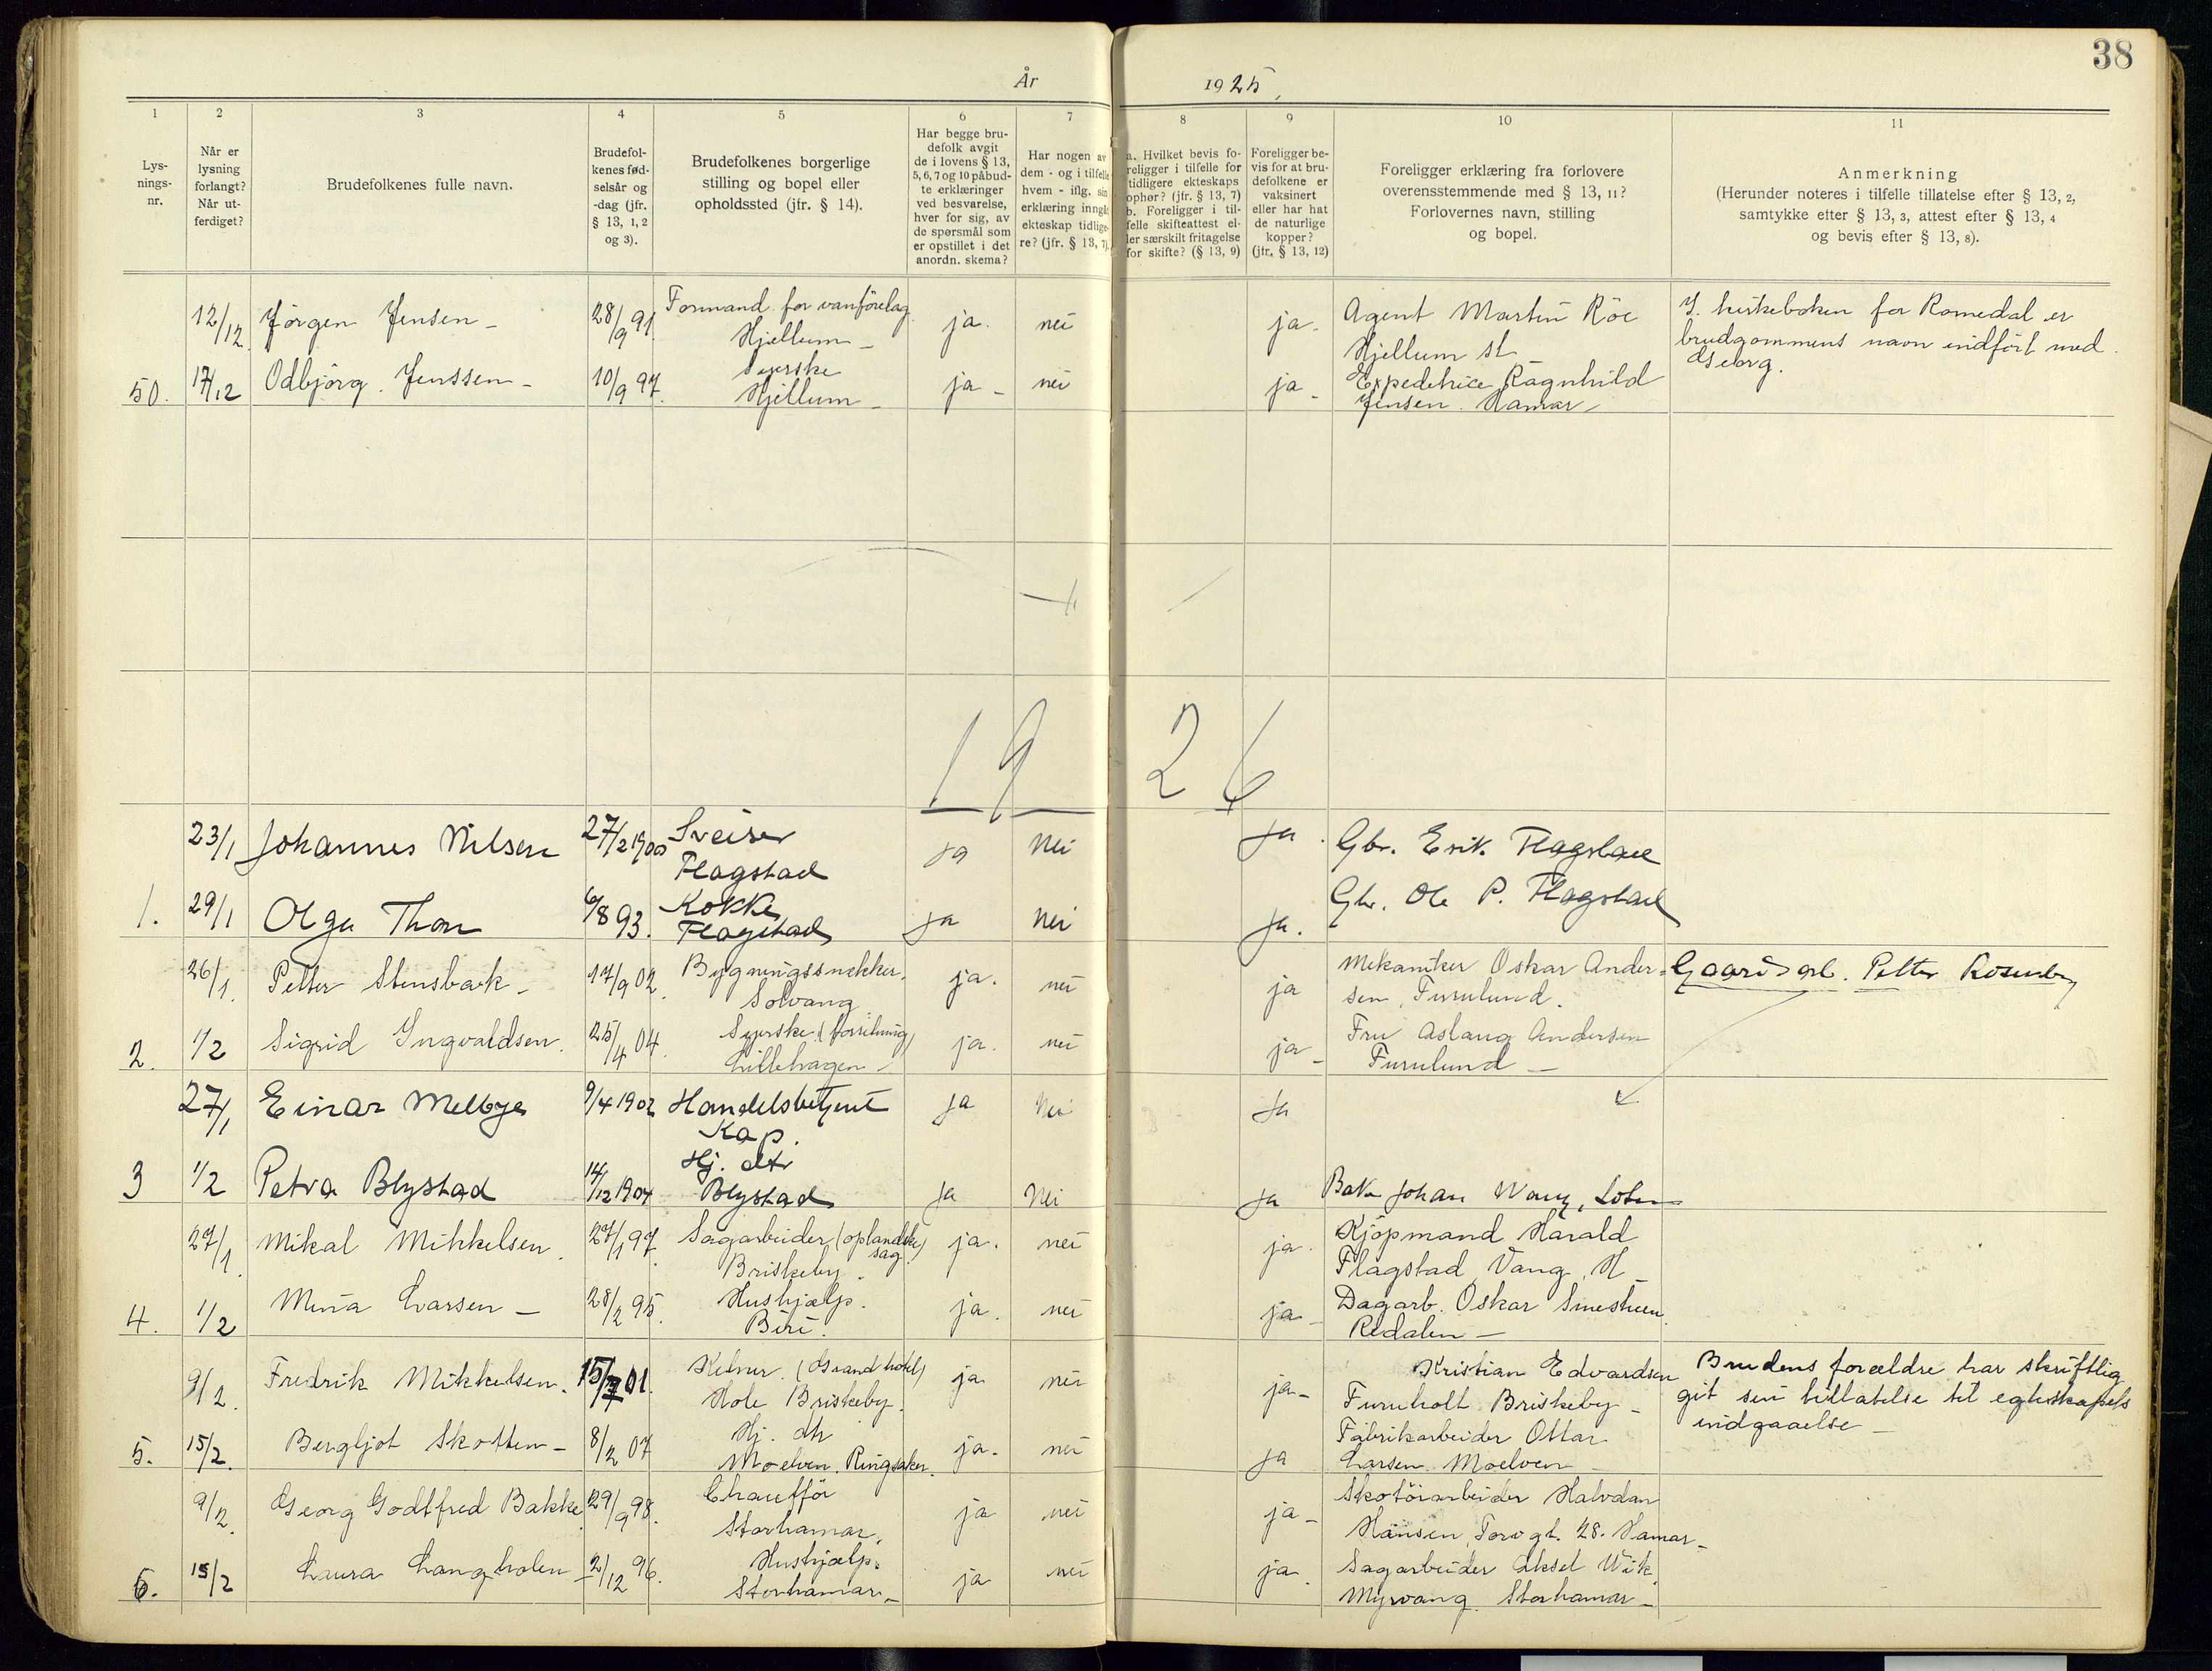 38
År 1925.
1 2 3 4 5 6 7 8 9 10 11
Lys-
nings-
nr.
Når er
lysning
forlangt?
Når ut-
ferdiget?
Brudefolkenes fulle navn.
Brudefol-
kenes fød-
selsår og
-dag (jfr.
§ 13, 1, 2
og 3).
Brudefolkenes borgerlige
stilling og bopel eller
opholdssted (jfr. § 14).
Har begge bru-
defolk avgit
de i lovens § 13,
5, 6, 7 og 10 påbud-
te erklæringer
ved besvarelse,
hver for sig, av
de spørsmål som
er opstillet i det
anordn. skema?
Har nogen av
dem - og i tilfelle
hvem - iflg. sin
erklæring inngå
ekteskap tidlige-
re? (jfr. § 13, 7).
a. Hvilket bevis fo-
religger i tilfelle for
tidligere ekteskaps
ophør? (jfr. § 13, 7)
b. Foreligger i til-
felle skifteattest el-
ler særskilt fritagelse
for skifte? (§ 13, 9)
Foreligger be-
vis for at bru-
defolkene er
vaksinert
eller har hat
de naturlige
kopper?
(jfr. § 13, 12)
Foreligger erklæring fra forlovere
overensstemmende med § 13, 11?
Forlovernes navn, stilling
og bopel.
Anmerkning
(Herunder noteres i tilfelle tillatelse efter § 13, 2,
samtykke efter § 13, 3, attest efter § 13, 4
og bevis efter § 13, 8).
12/12 Jørgen Jensen - 28/9 91. Formand for vanförelag ja. nei ja. Agent Martin Röe
Hjellum - Hjellum st -
50. 17/12 Odbjörg Jenssen - 10/9 97. Syerske ja - nei ja - Expeditrice Ragnhild
Hjellum - Jensen. Hamar -
I kirkeboken for Romedal er
brudgommens navn indfört med
Georg.
1926
23/1 Johannes Nilsen 27/2 1900 Sveiser ja Nei ja. Gbr. Erik Flagstad
Flagstad
1. 29/1 Olga Thon 6/8 93. Kokke ja Nei ja. Gbr. Ole P. Flagstad
Flagstad
26/1. Petter Stensbak - 17/9 02. Bygningssnekker. ja. nei ja Mekaniker Oskar Ander-
Solvang sen, Furulund.
Gaardsarb. Petter Rosenberg
2. 1/2 Sigrid Ingvaldsen. 25/4 04. Syerske (forretning) ja. nei ja - Fru Aslaug Andersen
Lillehagen - Furulund -
27/1 Einar Melbye 9/4 1902 Handelsbetjent ja Nei ja
Kap.
3 1/2 Petra Blystad 14/12 1904 Hj. dtr ja Nei ja Bak. Johan Wang, Löten
Blystad
27/1. Mikal Mikkelsen. 27/1 97. Sagarbeider (oplandske sag) ja. nei ja. Kjöpmand Harald
Briskeby. Flagstad, Vang, H -
4. 1/2 Mina Larsen - 28/2 95. Hushjælp. ja. nei ja - Dagarb. Oskar Smestuen
Biri. Redalen -
9/2. Fredrik Mikkelsen. 15/7 01. Kelner. (Grand hotel) ja nei ja - Kristian Edvardsen
Hole Briskeby. Furuholt Briskeby -
Brudens forældre har skriftlig
git sin tillatelse til egteskapets
indgaaelse -
5. 15/2. Bergljot Skotten - 8/2 07 Hj. dtr ja. nei ja Fabrikarbeider Ottar
Moelven. Ringsaker. Larsen. Moelven -
9/2. Georg Godtfred Bakke 29/9 98. Chaufför ja nei ja - Skotöiarbeider Halvdan
Storhamar. Hansen, Torvgt. 28. Hamar -
6. 15/2 Laura Langholen - 2/12 96. Hushjælp. ja nei ja. Sagarbeider Aksel Wik.
Storhamar - Myrvang. Storhamar -